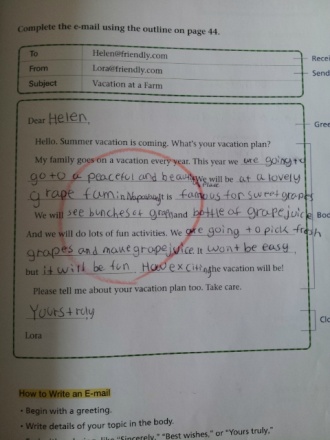 Complete the e-mail using the outline on page 44.
To Helen@friendly.com
From Lora@friendly.com
Subject Vacation at a Farm
Dear Helen,
Hello. Summer vacation is coming. What's your vacation plan?
My family goes on a vacation every year. This year we are going to
go to a peaceful and beauty Place We will be at a lovely
grape farm in is famous for sweet grapes
We will see bunches of and bottle of grape juice
And we will do lots of fun activities. We are going to pick fresh
grapes and make grape juice It won't be easy,
but it will be fun. How exciting the vacation will be!
Please tell me about your vacation plan too. Take care.
Yours truly
Lora
How to Write an E-mail
• Begin with a greeting.
• Write details of your topic in the body.
like "Sincerely," "Best wishes," or "Yours truly,"